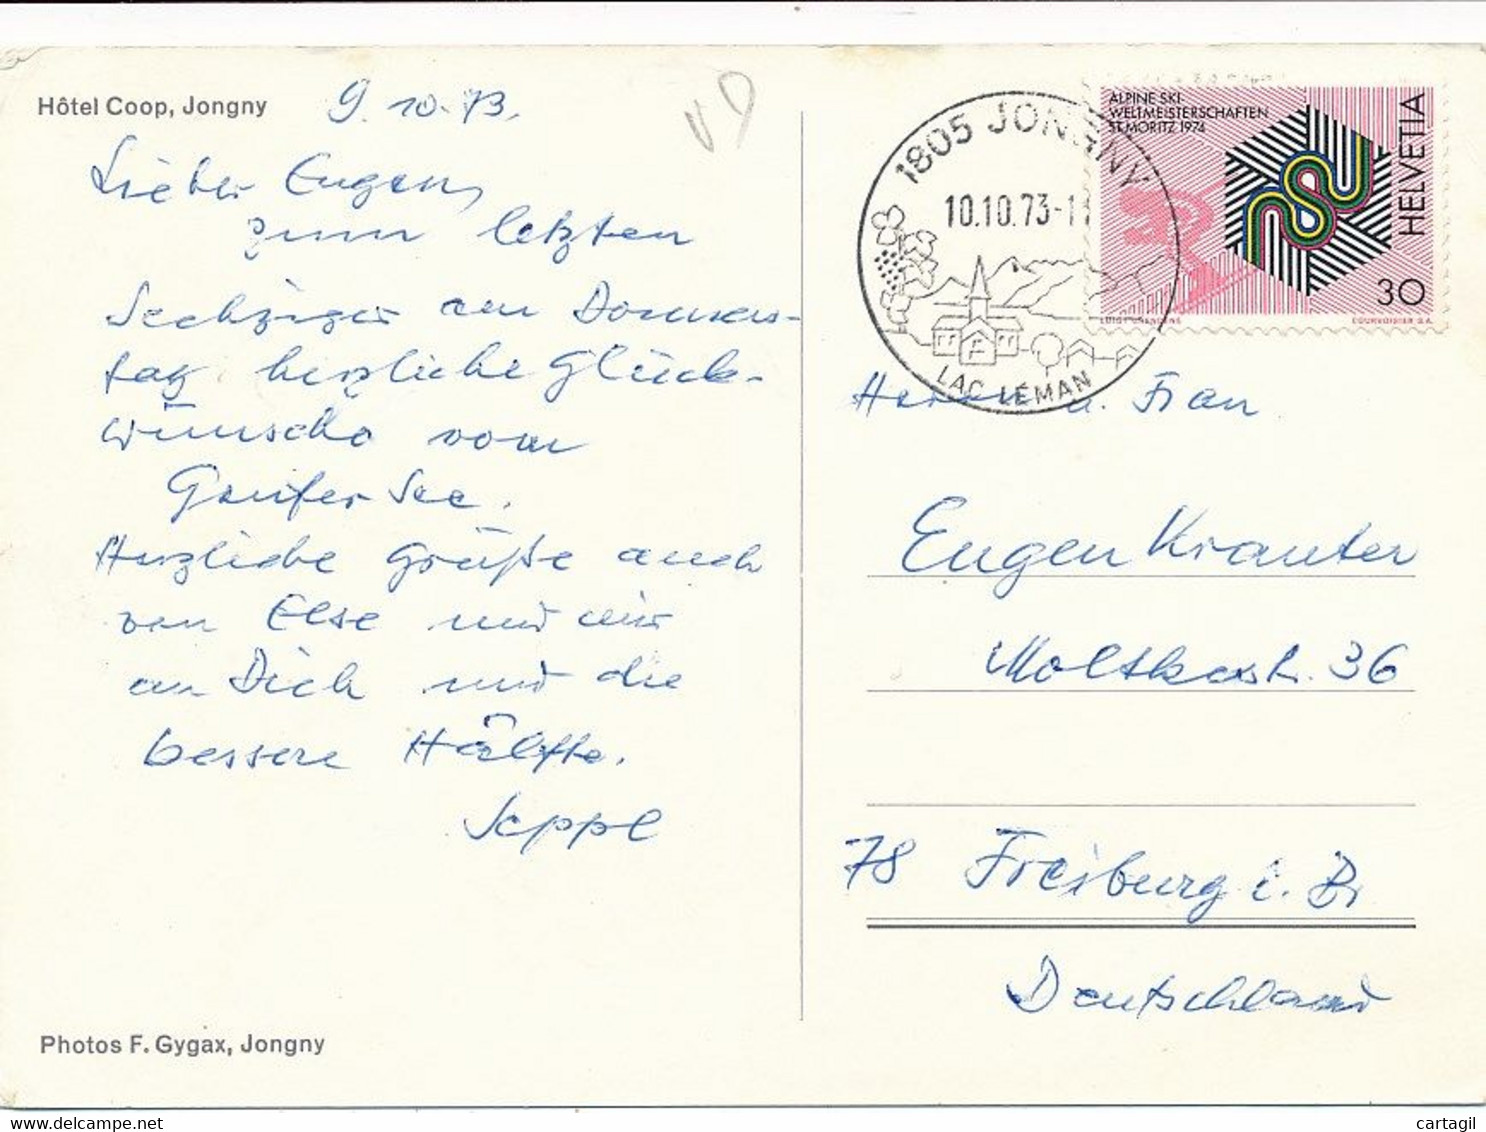 Hôtel Coop, Jongny
9.10.73.
Lieber Eugen,
zum letzten
Sechziger am Donners-
tag herzliche Glück-
wünsche vom
Genfer See.
Herzliche Grüße auch
von Else und mir
an Dich und die
bessere Hälfte.
Seppl
Photos F. Gygax, Jongny
1805 JONGNY
10.10.73-11
LAC LÉMAN
ALPINE SKI-
WELTMEISTERSCHAFTEN
ST. MORITZ 1974
HELVETIA
30
COURVOISIER S.A.
Herrn u. Frau
Eugen Krauter
Moltkestr. 36
78 Freiburg i. Br
Deutschland
cartagil